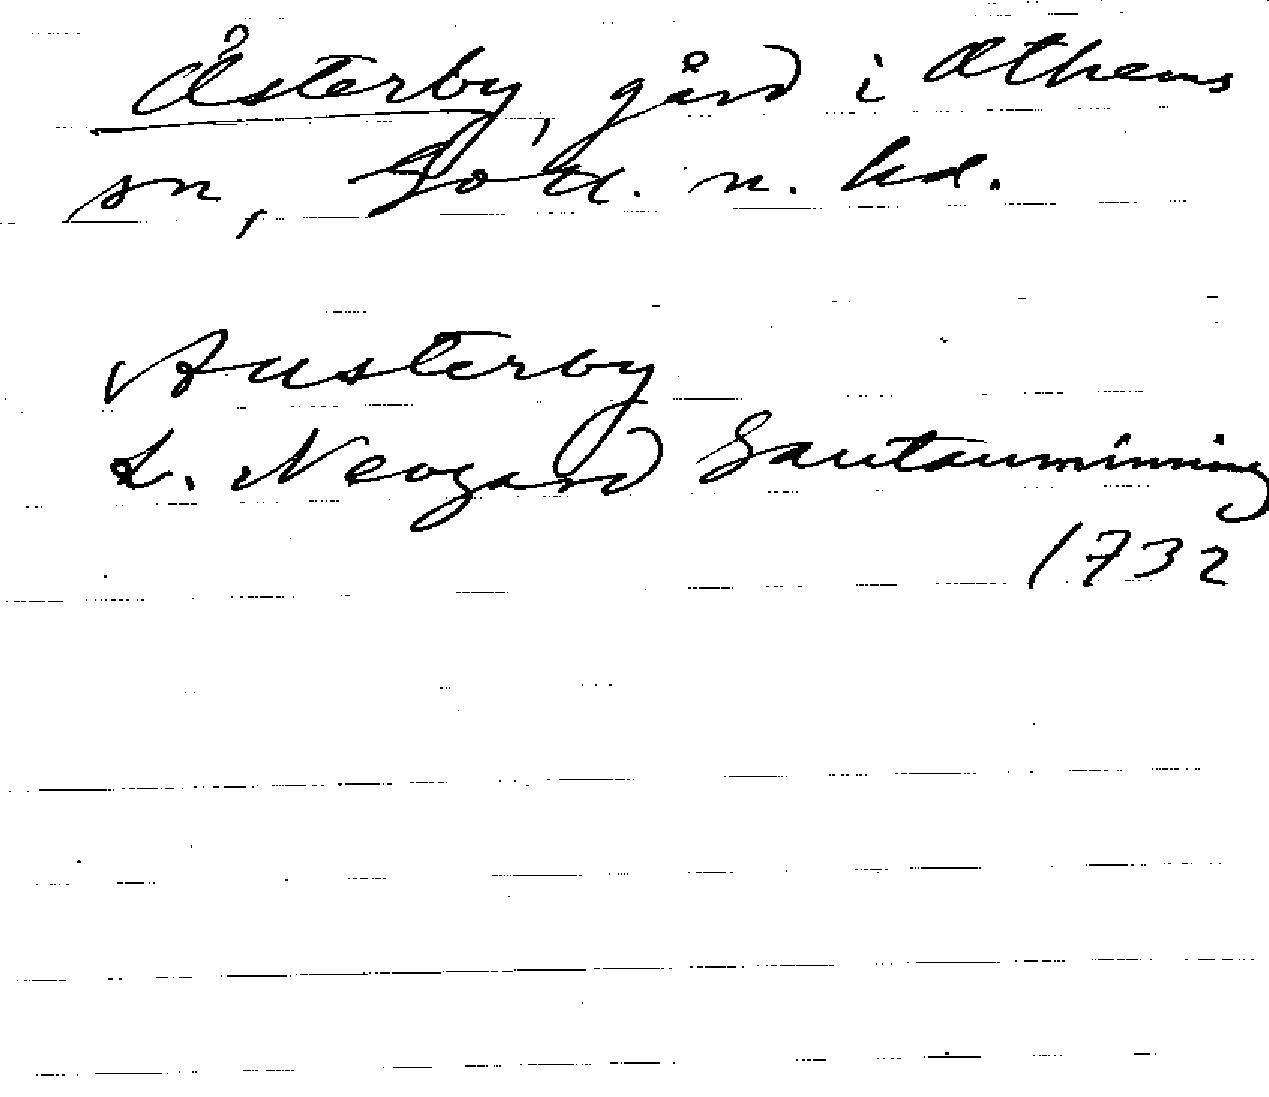 Åsterby, gård i Athems
sn, Gotl. n. hd.
Austerby
L. Neogard Gautauminning
1732